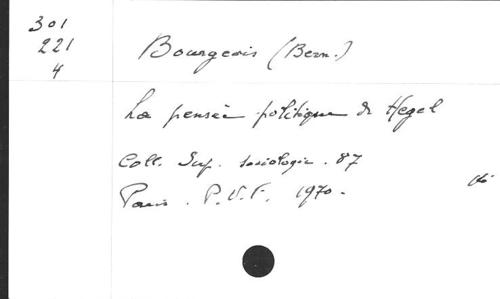 301
221
4
Bourgeois (Bern.)
La pensée politique de Hegel
Coll. Sup. sociologie. 87
Paris. P.U.F. 1970.